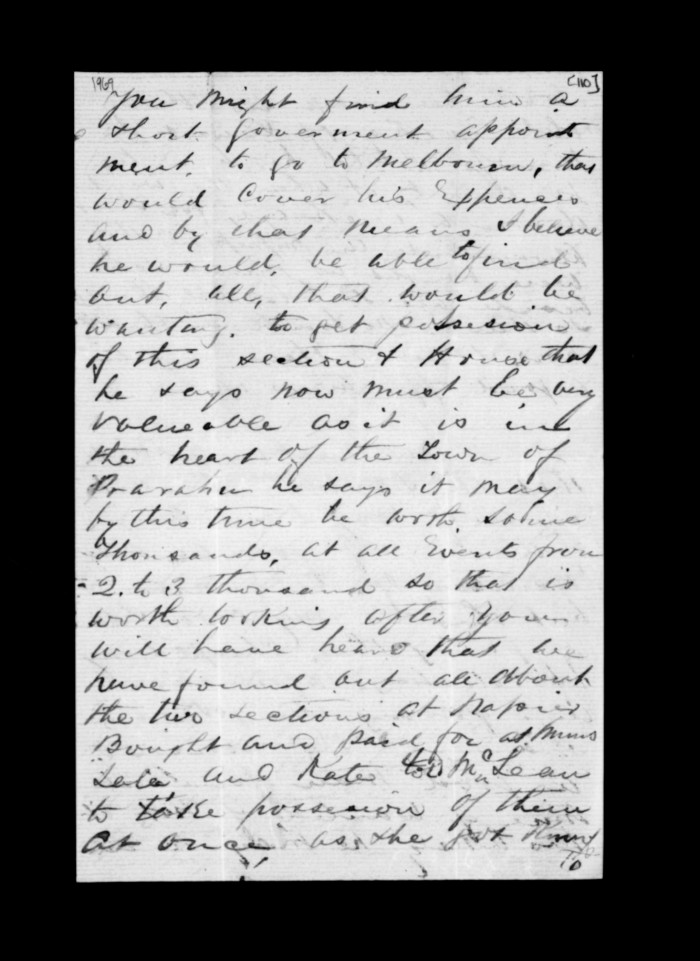 1969 [110]
You might find him a
short goverment appoint
ment, to go to Melbourn, that
would cover his Expences
and by that means I believe
he would, be able to find
out, all, that would be
wanting. to get possesion
of this section & House that
he says now must be very
valueable as it is in
the heart of the Town of
Prarahn he says it may
by this time be worth some
thousands, at all Events from
2. to 3 thousand so that is
worth looking after you
will have heard that we
have found out all about
the two sections at Napier
Bought and paid for
Lela and Kate told McLean
to take possesion of them
at once, as she got
to